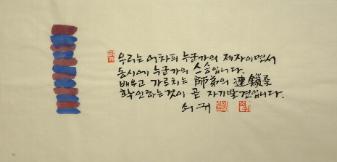 우리는 어차피 누군가의 제자이면서
동시에 누군가의 스승입니다.
배우고 가르치는 師弟의 連鎖를
확인하는것이 곧 자기발견입니다.
쇠귀